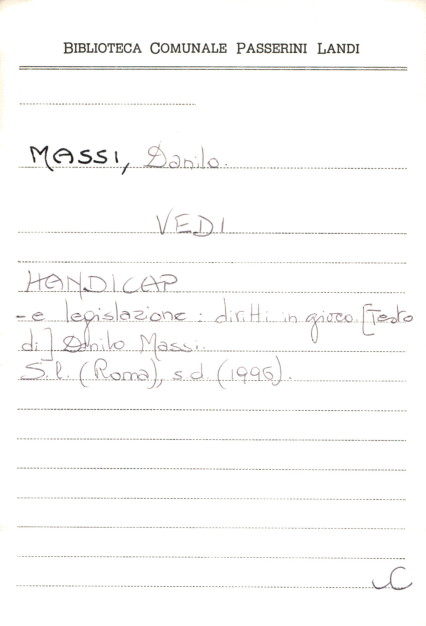 BIBLIOTECA COMUNALE PASSERINI LANDI
MASSI, Danilo.
VEDI
HANDICAP
- e legislazione: diritti in gioco. [Testo
di] Danilo Massi.
S.l. (Roma), s.d. (1996).